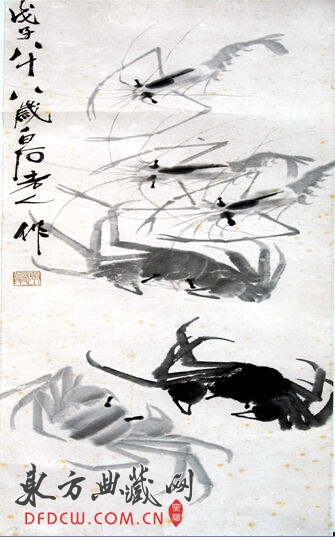 戊子八十八歲白石老人作
東方典藏网
DFDCW.COM.CN